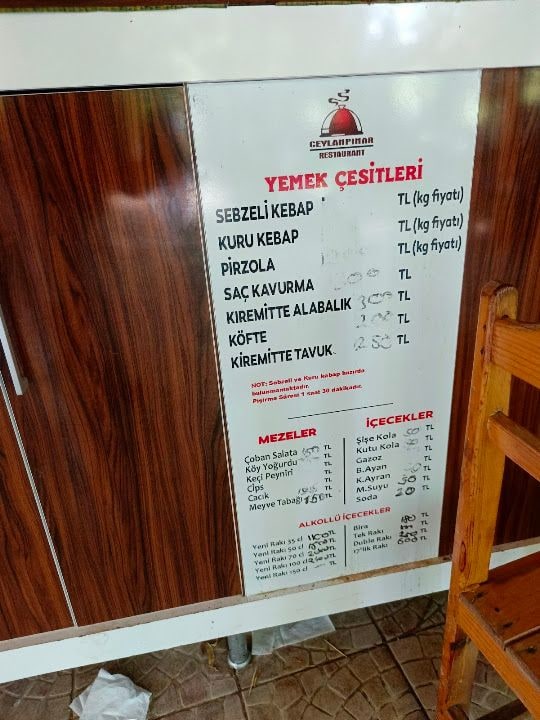 CEYLANPINAR
RESTAURANT
YEMEK ÇESİTLERİ
SEBZELİ KEBAP TL (kg fiyatı)
KURU KEBAP TL (kg fiyatı)
PİRZOLA TL (kg fiyatı)
SAÇ KAVURMA TL
KIREMİTTE ALABALIK 300 TL
KÖFTE 200 TL
KİREMİTTE TAVUK 250 TL
NOT: Sebzeli ve Kuru kebap hazırda
bulunmamaktadır.
Pişirme Süresi 1 saat 30 dakikadır.
MEZELER
Çoban Salata TL
Köy Yoğurdu TL
Keçi Peyniri TL
Cips TL
Cacık TL
Meyve Tabağı 150 TL
İÇECEKLER
Şişe Kola TL
Kutu Kola TL
Gazoz TL
B.Ayan TL
K.Ayran TL
M.Suyu 50 TL
Soda 20 TL
ALKOLLÜ İÇECEKLER
Yeni Rakı 35 cl 1100 TL
Yeni Rakı 50 cl TL
Yeni Rakı 70 cl TL
Yeni Rakı 100 cl TL
Yeni Rakı 150 cl TL
Bira TL
Tek Rakı TL
Duble Rakı TL
17'lik Rakı TL